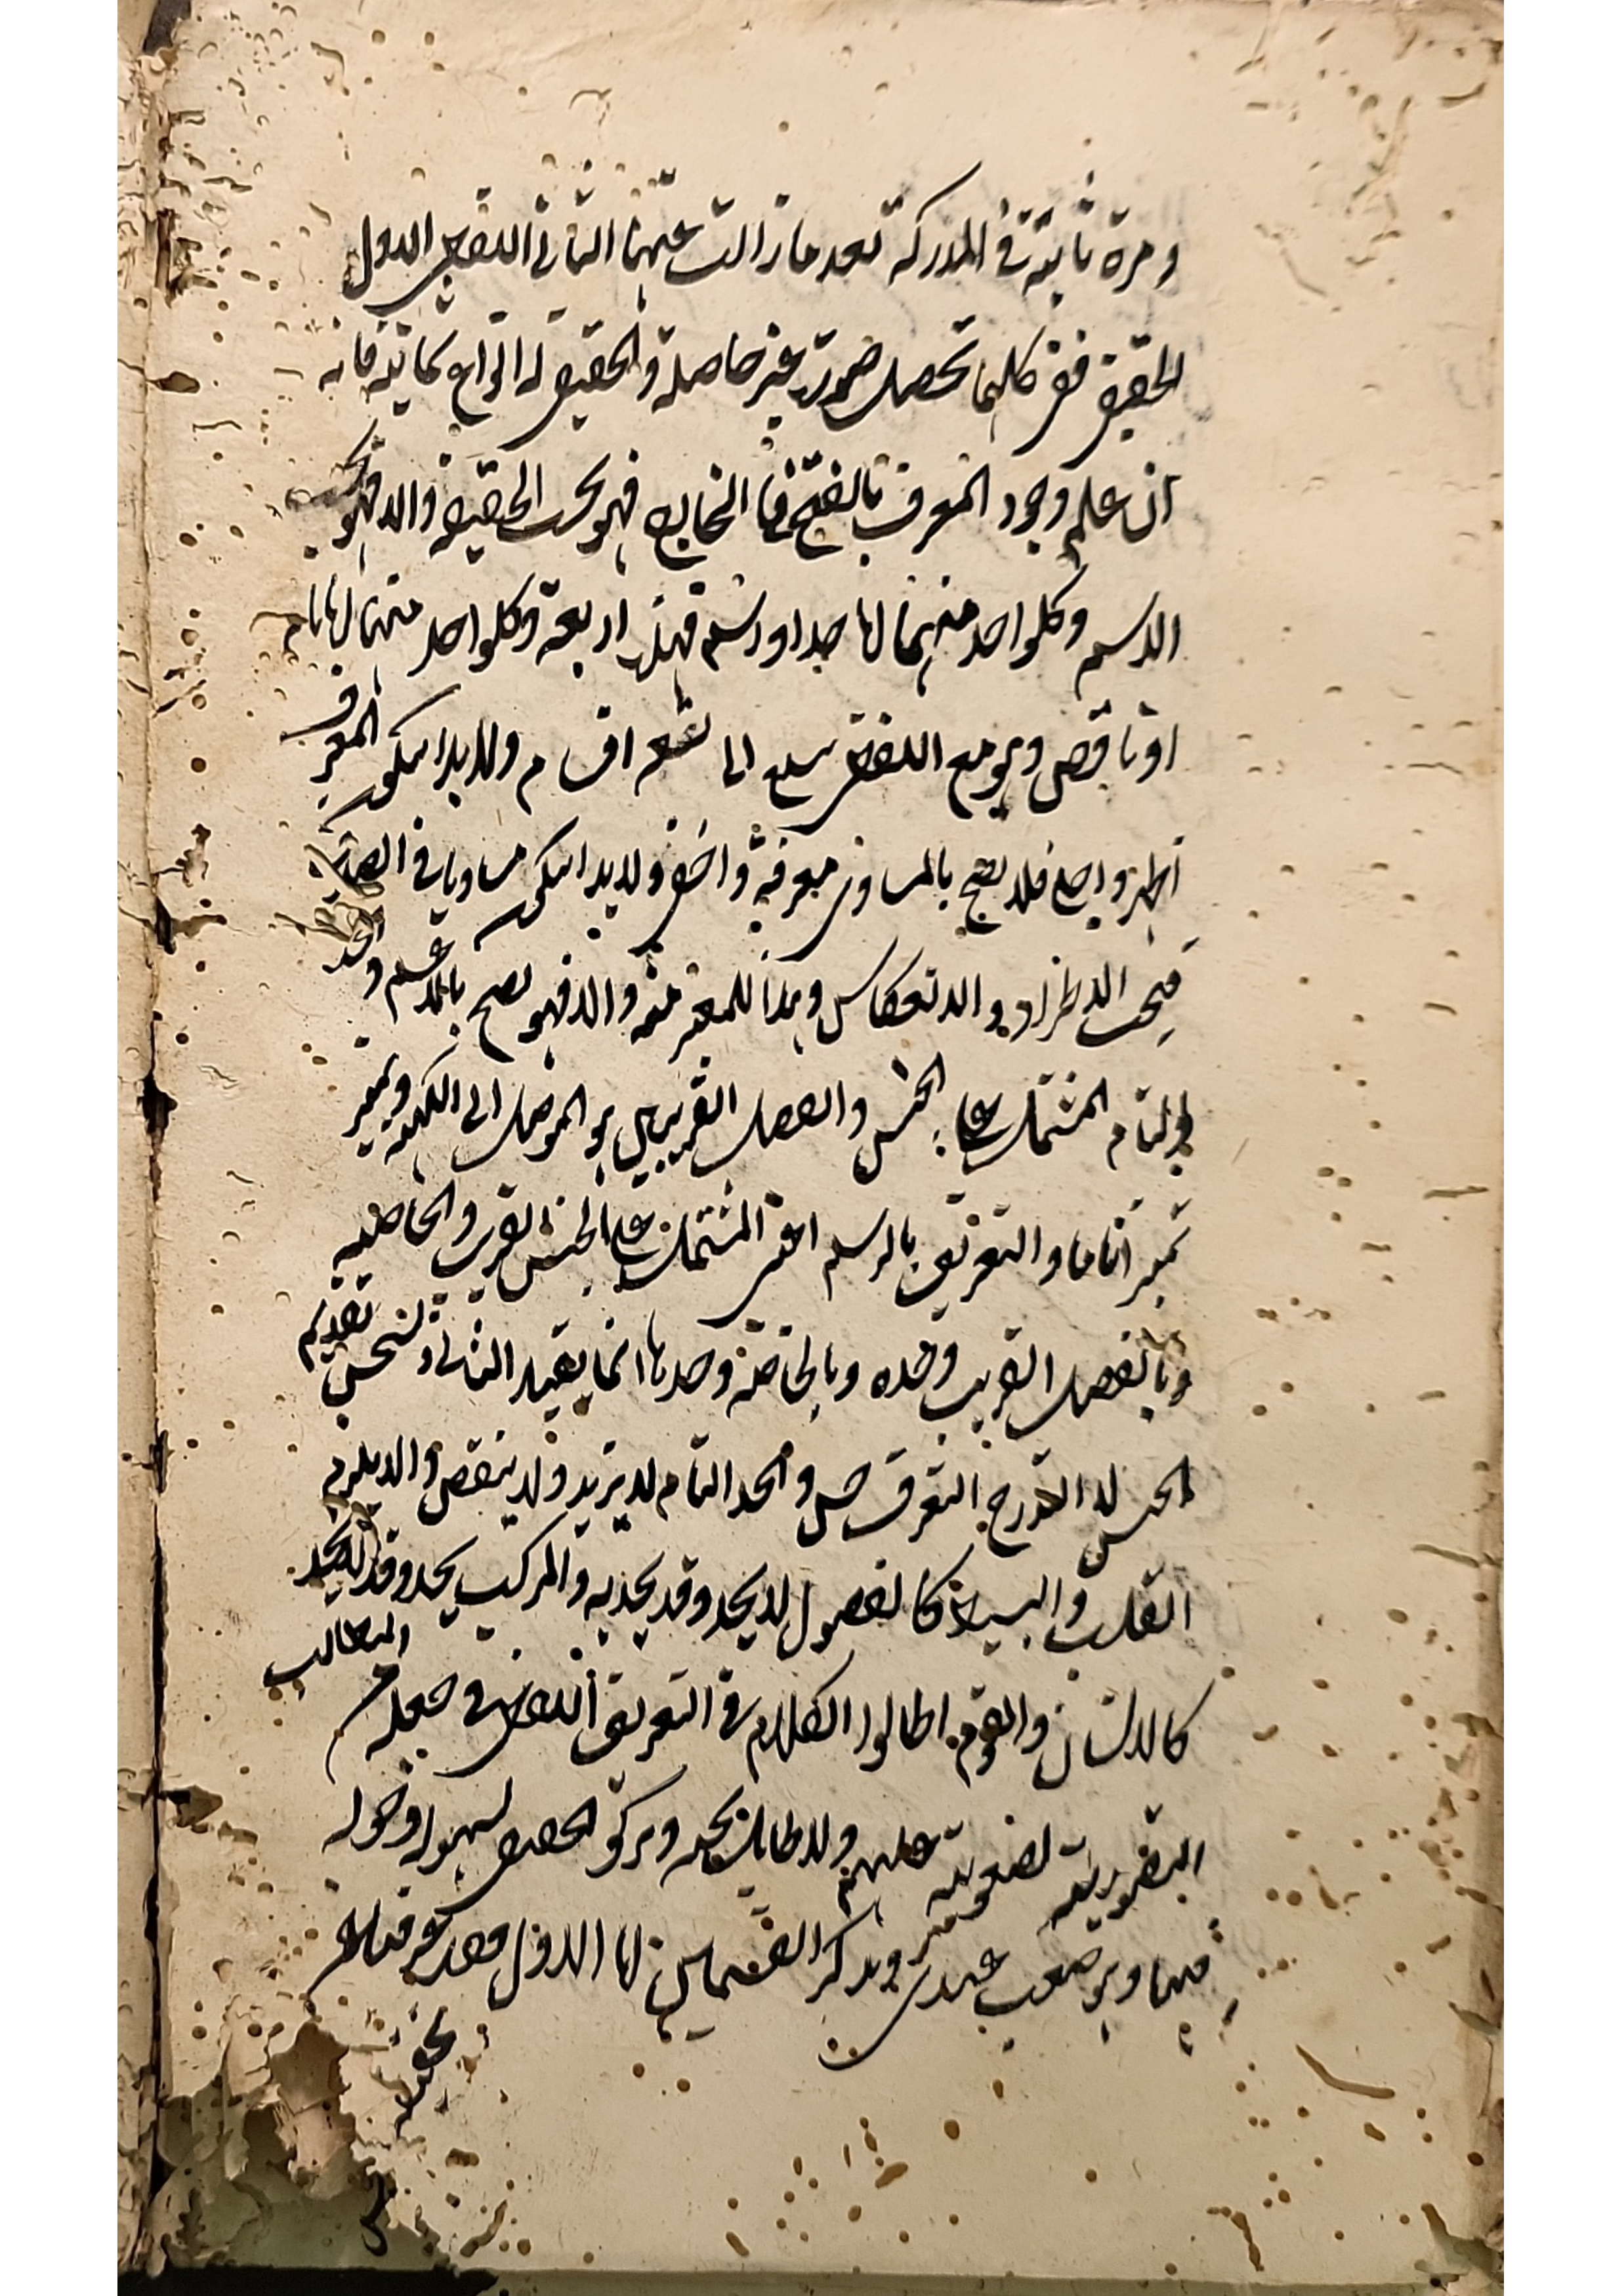 ومرة ثانية في المدركة بعد ما زالت عنهما الثاني اللفظي الاول
الحقيقي ففي كليهما تحصل صورة غير حاصلة والحقيقي له انواع ثمانية فانه
ان علم وجود المعرف بالفتح في الخارج فهو بحسب الحقيقة والا فهو بحسب
الاسم وكل واحد منهما اما حد او رسم فهذه اربعة وكل واحد منها اما تام
او ناقص وهو مع اللفظي تسع الى تسعة اقسام ولا بد ان يكون المعرف
اظهر واجلى فلا يصح بالمساوي معرفة واخفى ولا بد ان يكون مساويا في الصدق
فيجب الاطراد والانعكاس وهذا للمعنى منه والا فهو يصح بالاعم والحد
التام المشتمل على الجنس والفصل القريبين هو الموصل الى الكنه ويميز
تميزا تاما والتعريف بالرسم اعنى المشتمل على الجنس القريب والخاصة
وبالفصل القريب وحده وبالخاصة وحدها انما يفيد الثاني ويستحسن تقديم
الجنس والحد التام لا يزيد ولا ينقص والا يلزم
القلب والبسيط كالفصول لا يحد وقد يحد به والمركب يحد وقد لا يحد
كالانسان والقوم اطالوا الكلام في التعريف اللفظي في جعله من المطالب
التصورية لصعوبته عليهم ولا طائل تحته وتركوا الحقيقي لسهولة دخوله
فيها وهو صعب عندي ويذكر القسمين اما الاول فقد عرفناه